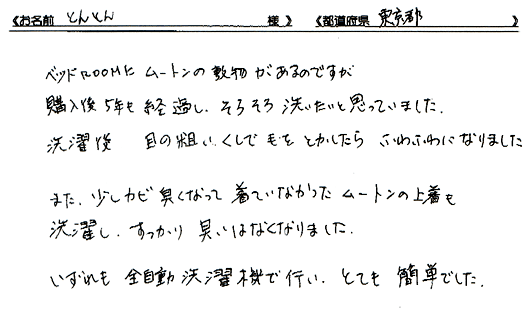 《お名前 とんとん 様》 《都道府県 東京都 》
ベッドROOMに ムートンの敷物があるのですが
購入後5年も経過し、そろそろ洗いたいと思っていました。
洗濯後 目の粗いくしで毛をとかしたら ふわふわになりました
また、少しカビ臭くなって着ていなかった ムートンの上着も
洗濯し、すっかり臭いはなくなりました。
いずれも全自動洗濯機で行い、とても簡単でした。